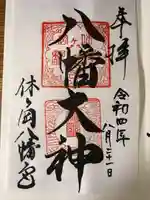 奉拝
八幡大神
令和四年
八月二十一日
休ヶ岡八幡宮